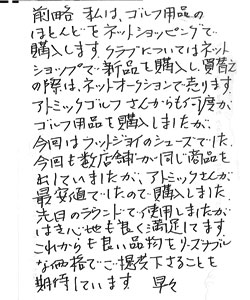 前略 私は、ゴルフ用品の
ほとんどをネットショッピングで
購入します。クラブについてはネット
ショップで新品を購入し、買替え
の際は、ネットオークションで売ります。
アトミックゴルフさんからも何度か
ゴルフ用品を購入しましたが、
今回はフットジョイのシューズでした。
今回も数店舗か同じ商品を
出していましたが、アトミックさんが
最安値でしたので購入しました。
先日のラウンドで使用しましたが
はき心地も良く満足してます。
これからも良い品物をリーズナブル
な価格でご提供下さることを
期待しています 早々